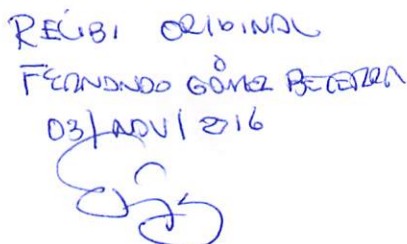 RECIBI ORIGINAL
FERNANDO GÓMEZ BECERRA
03/NOV/2016